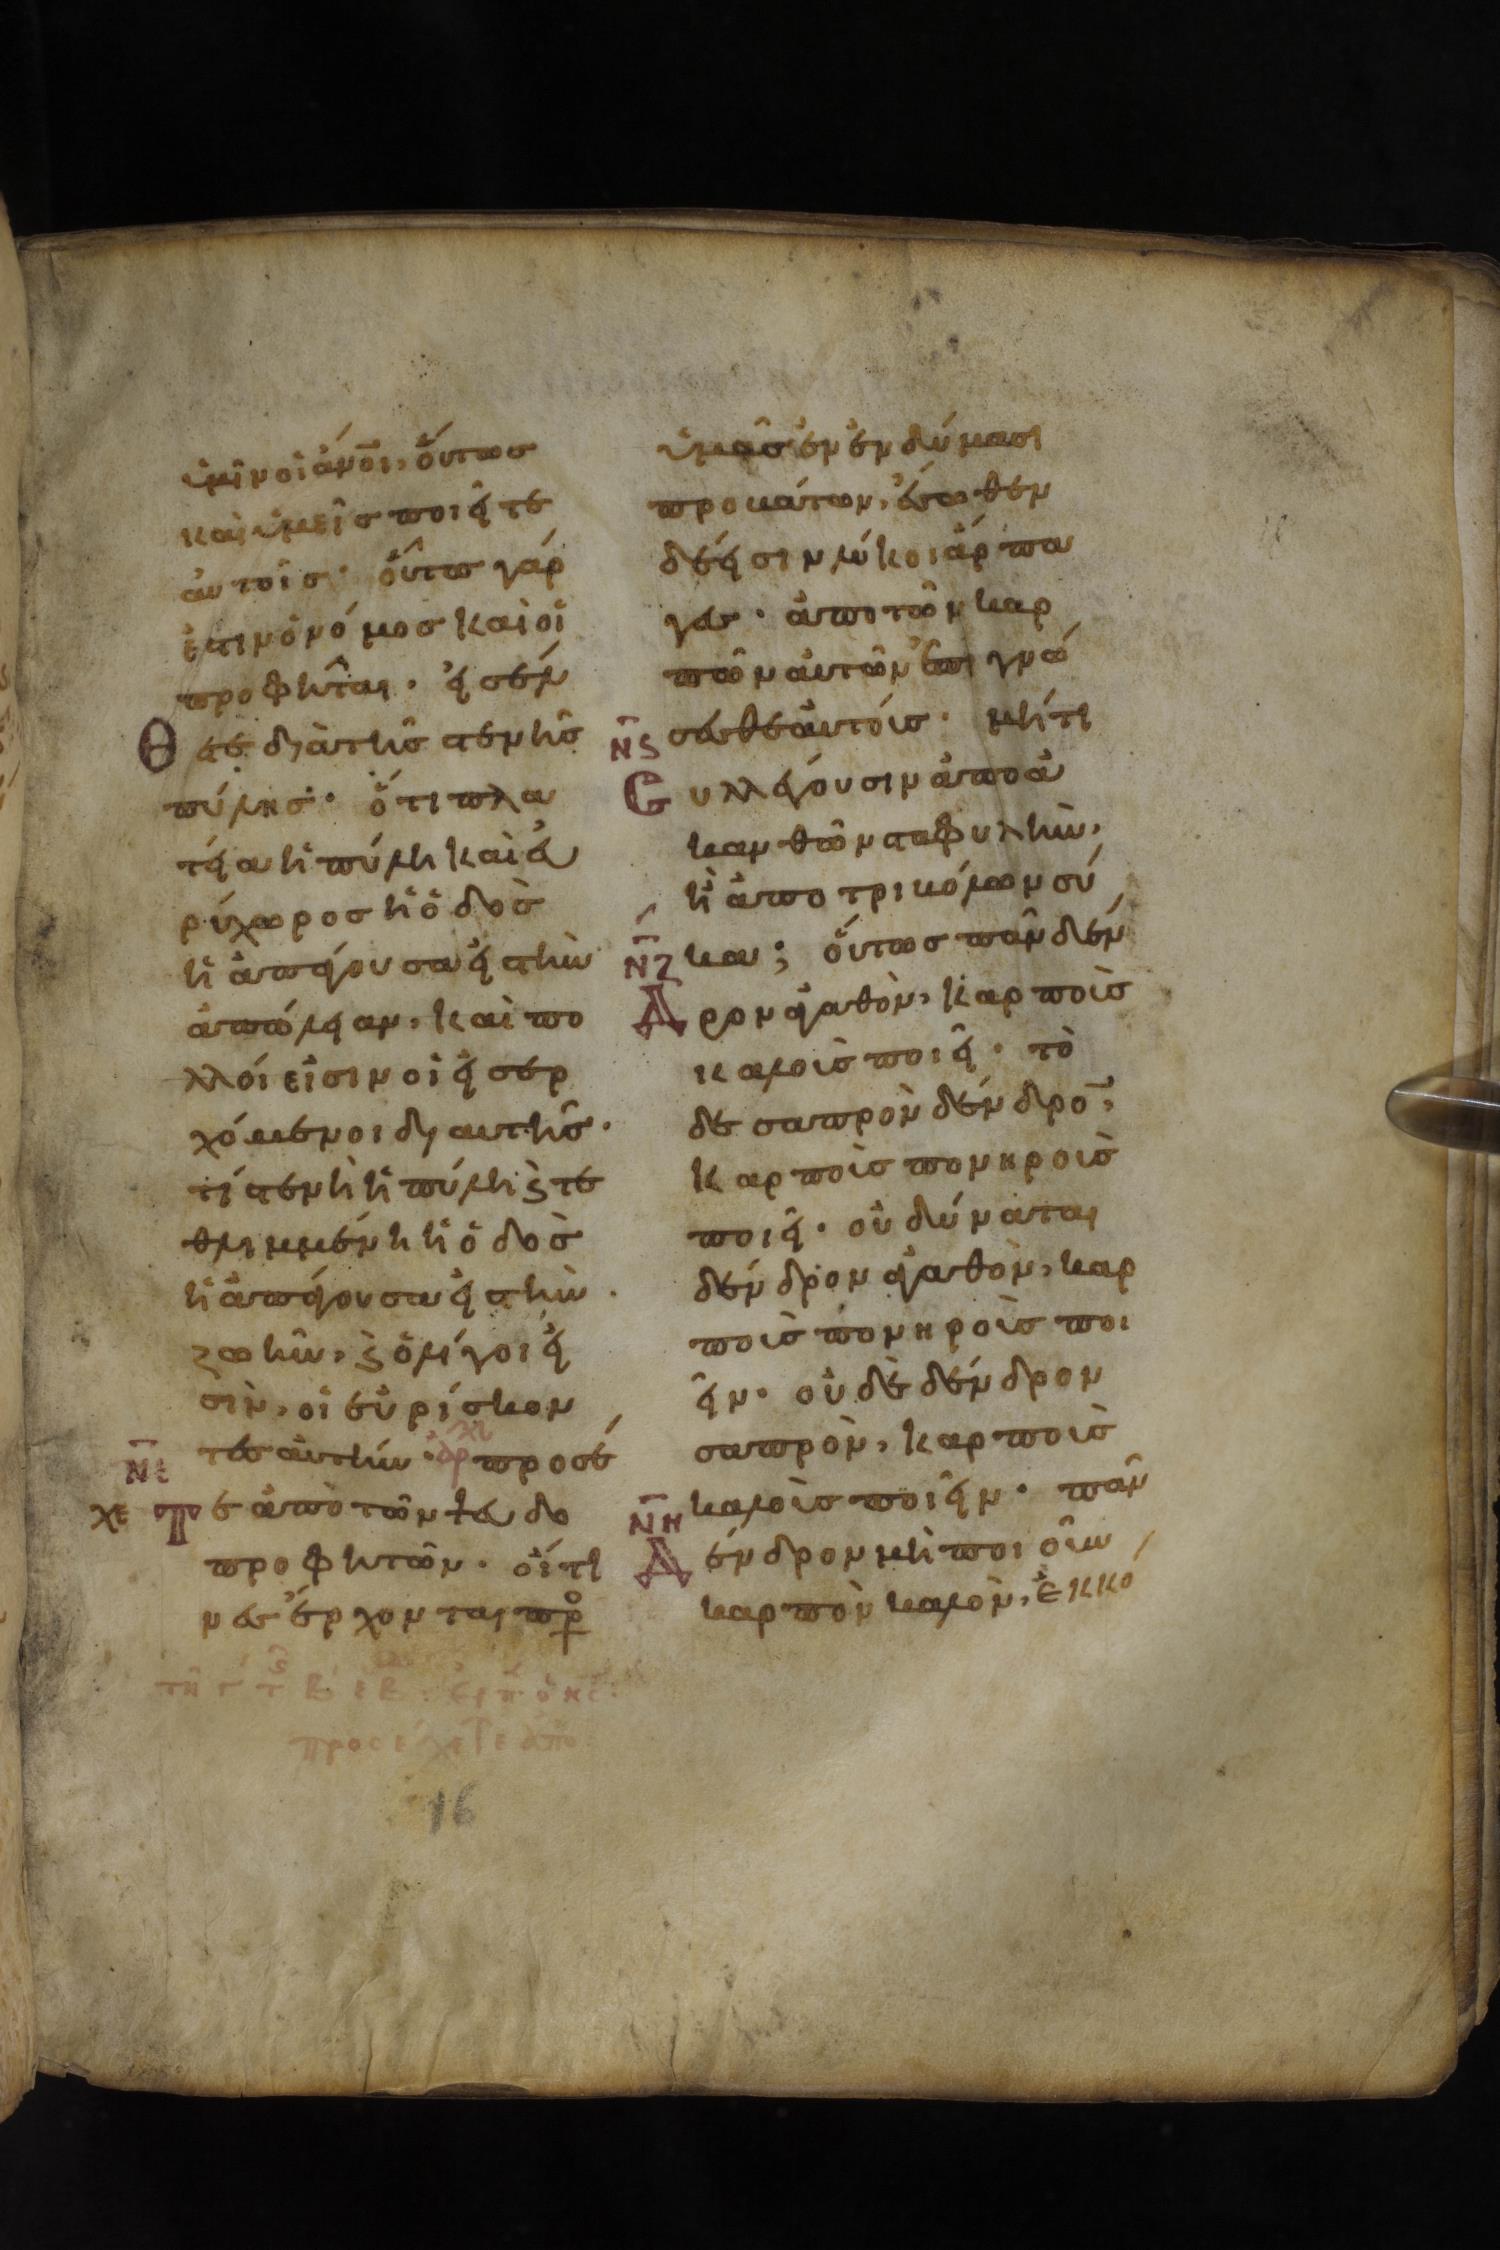 ὑμῖν οἱ ἄνο̅ι, οὕτως
καὶ ὑμεῖς ποιεῖτε
αὐτοῖς· οὗτως γάρ
ἐστιν ὁ νόμος καὶ οἱ
προφῆται· εἰσέλ
Θετε διὰ τῆς στενῆς
πύλης· ὅτι πλα
τεία ἡ πύλη καὶ εὐ
ρύχωρος ἡ ὁδὸς
ἡ ἀπάγουσα εἰς τὴν
ἀπώλειαν, καὶ πο
λλοί εἰσιν οἱ εἰσερ
χόμενοι δι αυτῆς·
τί στενὴ ἡ πύλη ϗ τε
θλιμμένη ἡ ὁδὸς
ἡ ἀπάγουσα εἰς τὴν
ζωὴν, ϗ ὀλίγοι εἰ
σὶν, οἱ εὑρίσκον
τες αὐτήν· ἀρχ προσέ
ΝΕ
χε Τε ἀπὸ τῶν ψευδο
προφητῶν· οἵτι
νες ἔρχονται πρ
προσέχετε ἀπο
16
ὑμᾶς ἐν ἐνδύμασι
προβάτων, ἔσωθεν
δέ εἰσιν λύκοι ἅρπα
γες· ἀπο τῶν καρ
πῶν αὐτῶν ἐπιγνώ
Νϛ σεσθε αὐτούς· μήτι
Συλλέγουσιν ἀπο ἀ
κανθῶν σταφυλὴν,
ἢ ἀπο τριβόλων σύ
ΝΖ κα; οὕτως πᾶν δέν
Δρον ἀγαθὸν, καρποὺς
καλοὺς ποιεῖ· τὸ
δε σαπρὸν δένδρο̅,
καρποὺς πονηροὺς
ποιεῖ· οὐ δύναται
δένδρον ἀγαθὸν, καρ
ποὺς πονηροὺς ποι
εῖν· οὐδὲ δένδρον
σαπρὸν, καρποὺς
ΝΗ καλοὺς ποιεῖν· πᾶν
Δένδρον μὴ ποιοῦν
καρπὸν καλὸν, ἐκκό